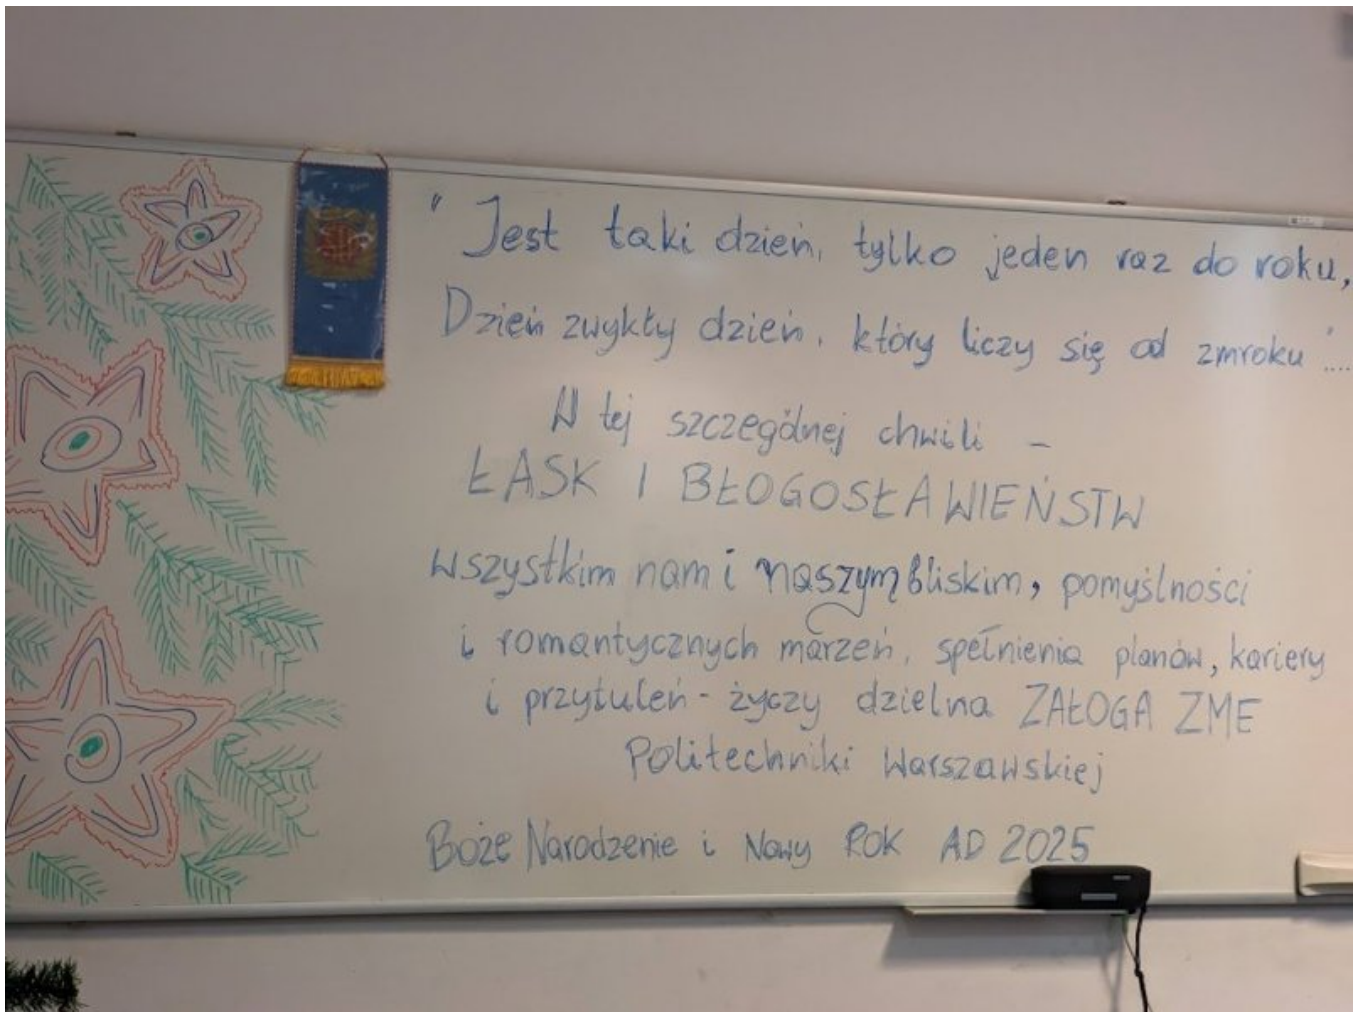 "Jest taki dzień, tylko jeden raz do roku,
Dzień zwykły dzień, który liczy się od zmroku"....
W tej szczególnej chwili -
ŁASK I BŁOGOSŁAWIEŃSTW
wszystkim nam i naszym bliskim, pomyślności
i romantycznych marzeń, spełnienia planów, kariery
i przytuleń - życzy dzielna ZAŁOGA ZME
Politechniki Warszawskiej
Boże Narodzenie i Nowy Rok AD 2025